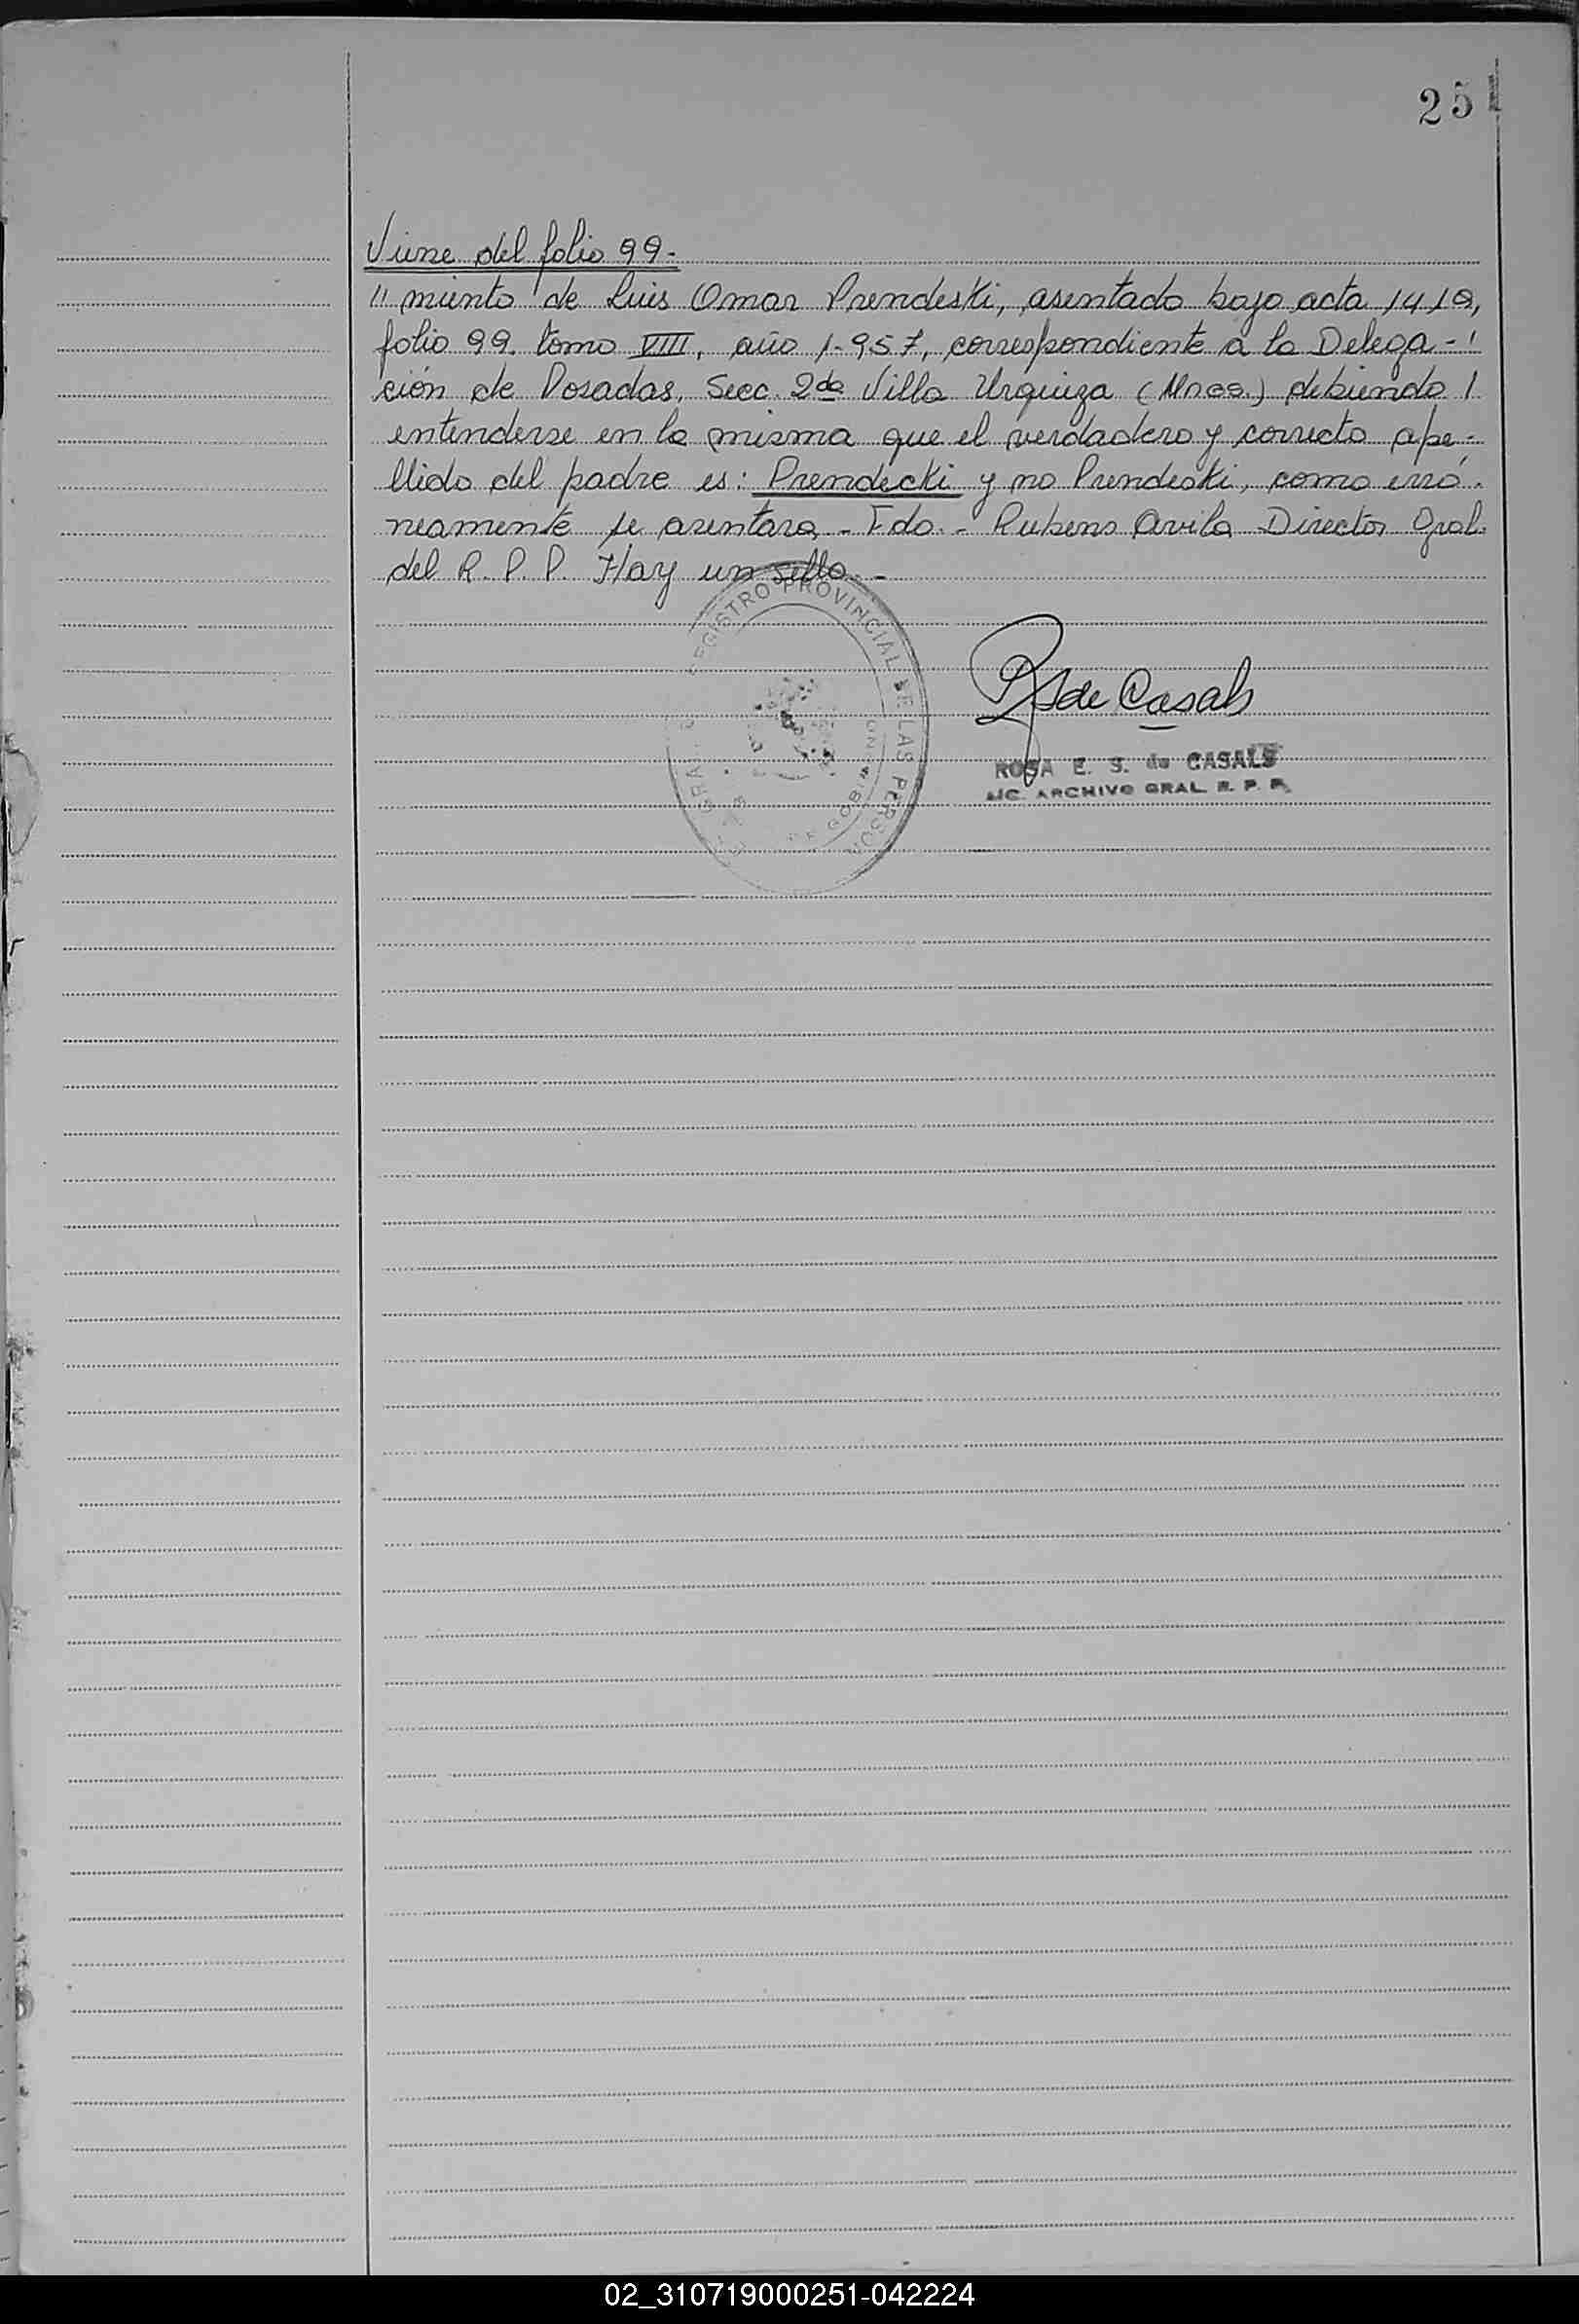 251
Viene del folio 99.-
// miento de Luis Omar Prendeski, asentado bajo acta 1419,
folio 99. tomo VIII, año 1.957, correspondiente a la Delega-
ción de Posadas, Secc. 2da Villa Urquiza (Mnes.) debiendo /
entenderse en la misma que el verdadero y correcto ape-
llido del padre es: Prendecki y no Prendeski, como erró-
neamente se asentara.- Fdo.- Rubens Avila Director Gral.
del R. P. P. Hay un sello.-
REGISTRO PROVINCIAL DE LAS PERSON
de Casals
ROSA E. S. de CASALS
ARCHIVO GRAL. R. P. P.
02_310719000251-042224